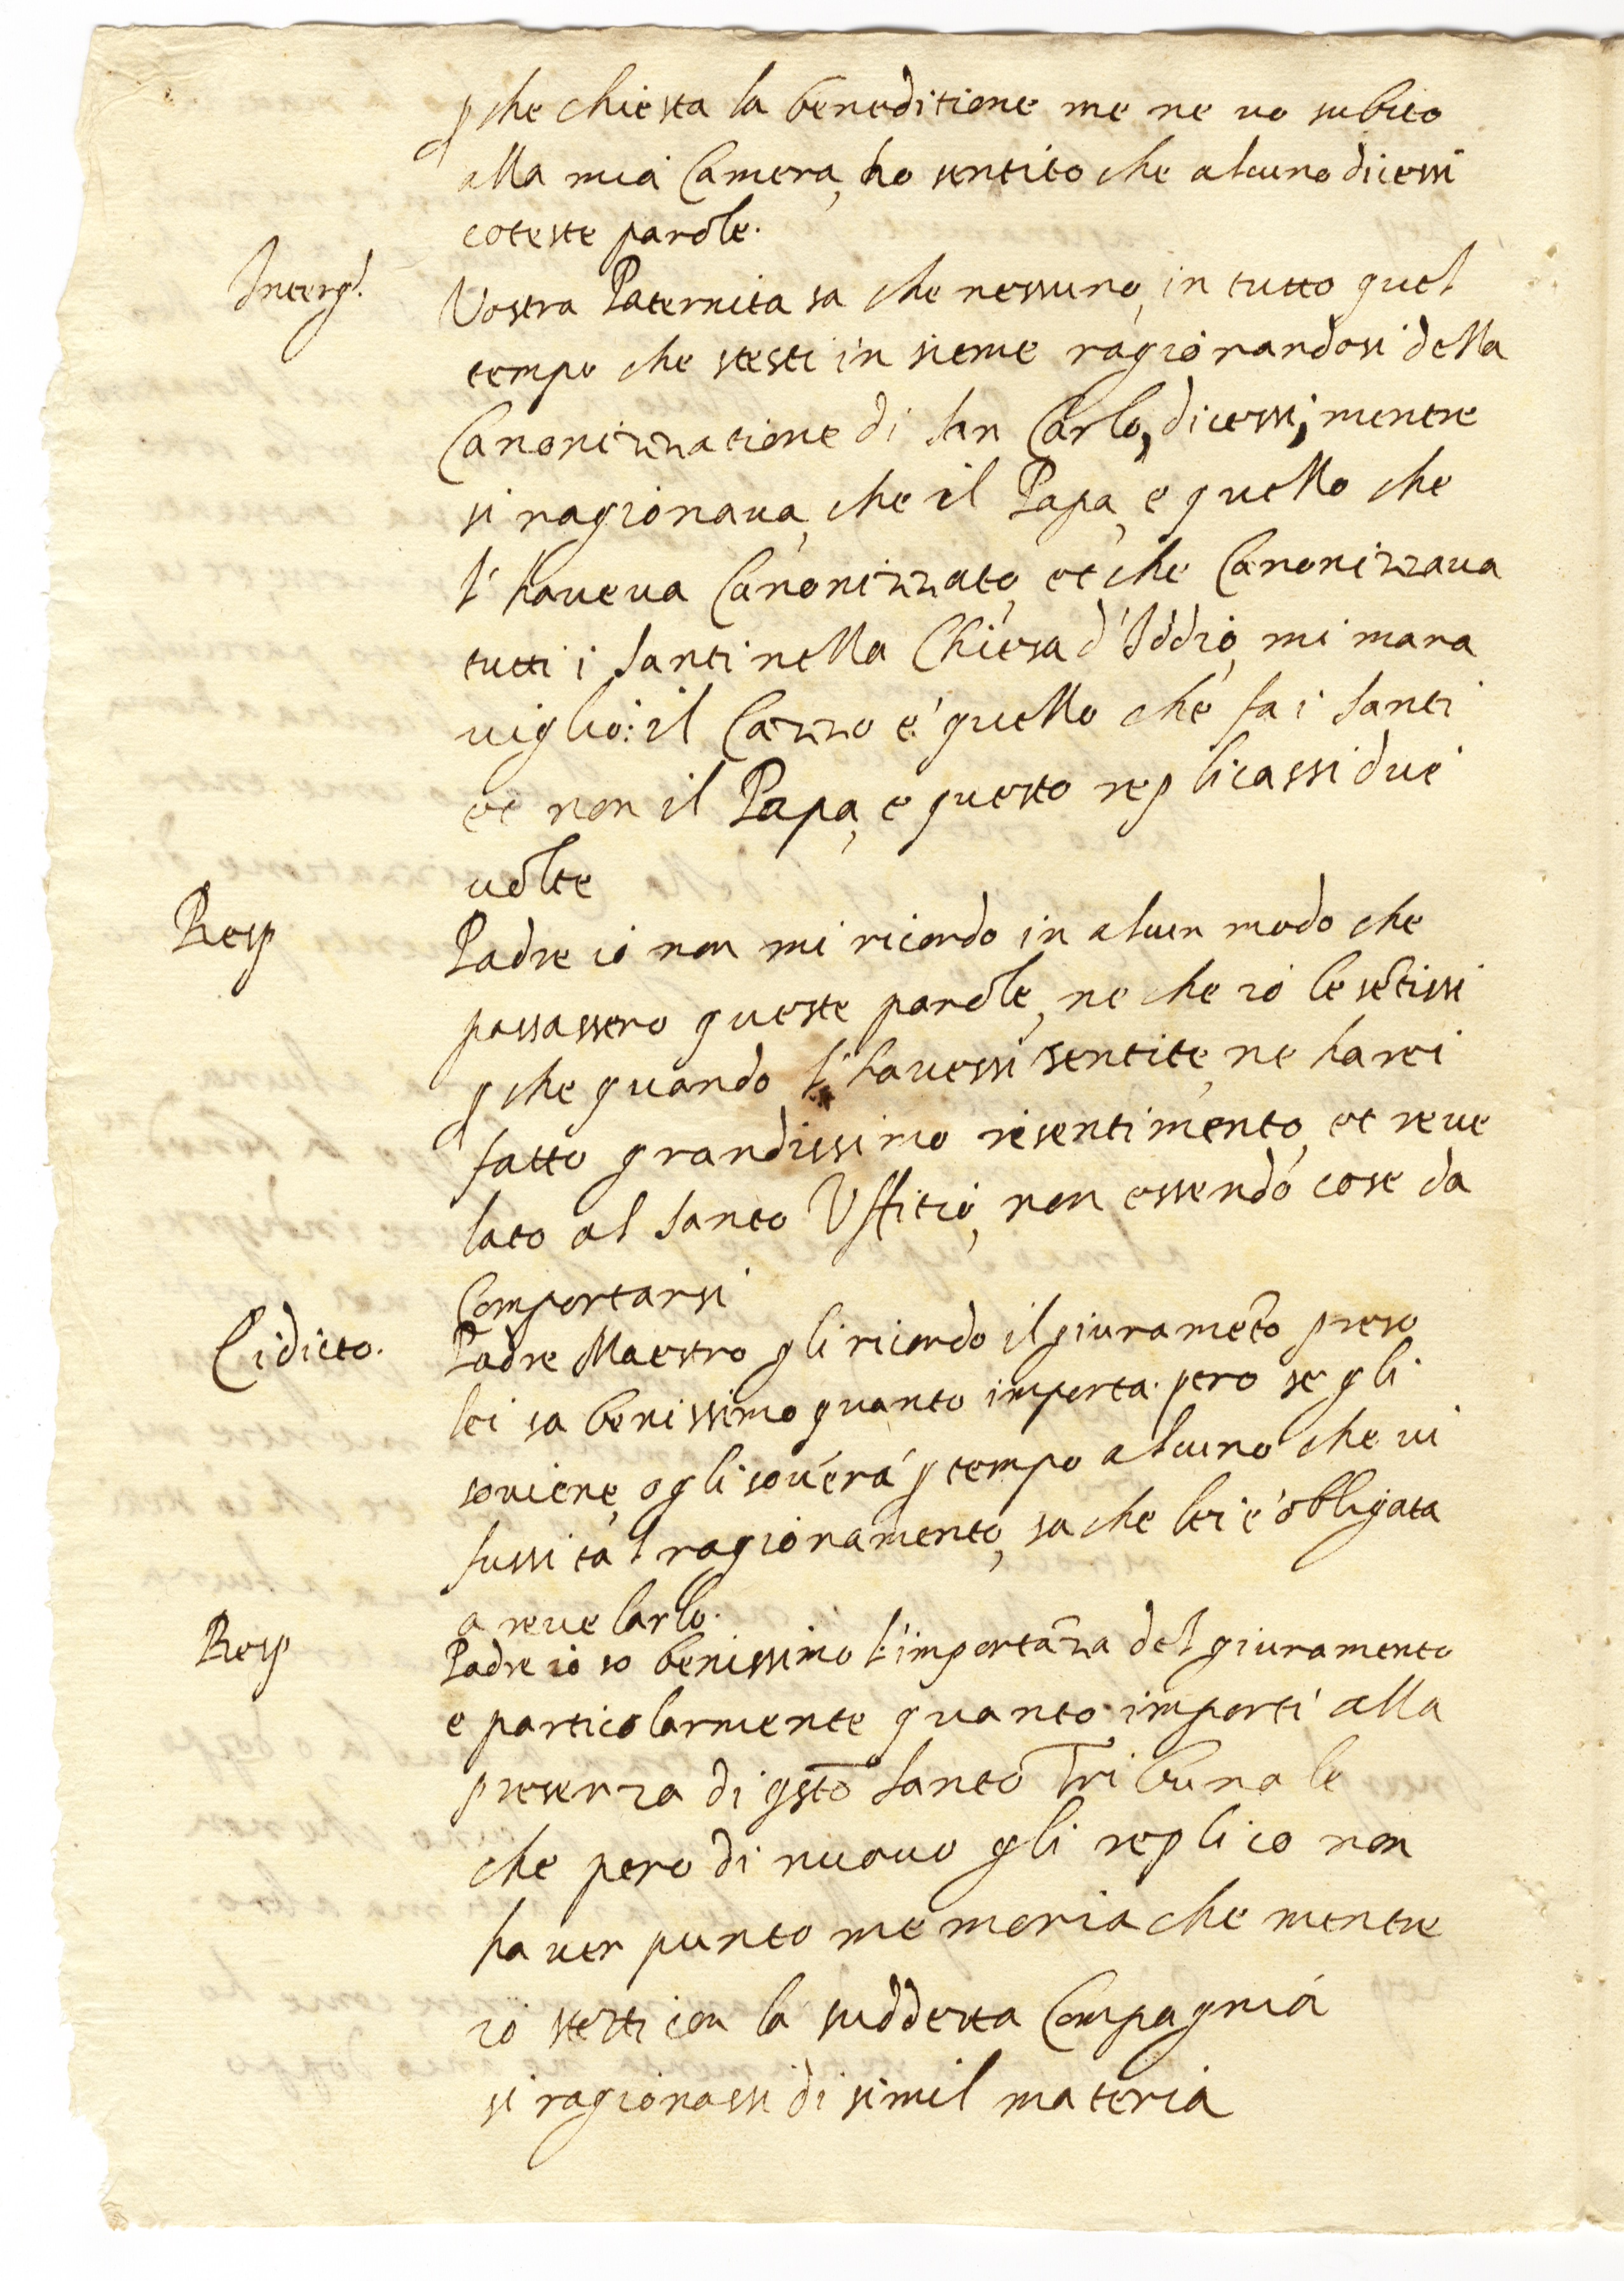 p che chiesta la beneditione me ne vo subito
alla mia Camera, ho sentito che alcuno dicessi
coteste parole.
Interg.
Vostra Paternita sa che nessuno, in tutto quel
tempo che stesti in sieme ragionandosi della
Canonizzatione di San Carlo, dicessi, mentre
si ragionava, che il Papa, e quello che
l'haveva Canonizzato, et che Canonizzava
tutti i Santi nella Chiesa d'Iddio, mi mara
viglio: il Cazzo e' quello che fa i Santi
et non il Papa, e questo replicassi due
volte
Resp
Padre io non mi ricordo in alcun modo che
passassero queste parole, ne che io le setissi
p che quando l'havessi sentite, ne harei
fatto grandissimo risentimento, et reve
lato al Santo Uffitio, non essendo cose da
Comportarsi
Ei dicto.
Padre Maestro gli ricordo il giuramēto preso
lei sa benissimo quanto importa. pero se gli
soviene, o gli sovérá p tempo alcuno che vi
fussi tal ragionamento, sa che lei é obligata
a revelarlo.
Resp
Padre io so benissimo l'importāza del giuramento
e particolarmente quanto importi alla
presenza di qsto Santo Tribunale
che pero di nuovo gli replico non
haver punto memoria che mentre
io stetti con la suddetta Compagnia
si ragionassi di simil materia